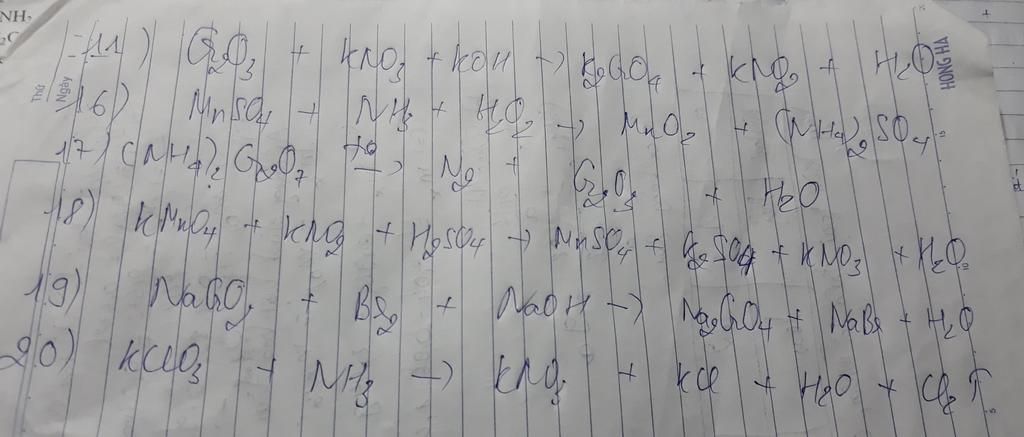 NH₂
11) Cr₂O₃ + KNO₃ + KOH → K₂CrO₄ + KNO₂ + H₂O
Thứ
Ngày
HONG HA
16) MnSO₄ + NH₃ + H₂O₂ → MnO₂ + (NH₄)₂SO₄
17) (NH₄)₂Cr₂O₇ t° → N₂ + Cr₂O₃ + H₂O
18) KMnO₄ + KNO₂ + H₂SO₄ → MnSO₄ + K₂SO₄ + KNO₃ + H₂O
19) NaCrO₂ + Br₂ + NaOH → Na₂CrO₄ + NaBr + H₂O
20) KClO₃ + NH₃ → KNO₃ + KCl + H₂O + Cl₂↑